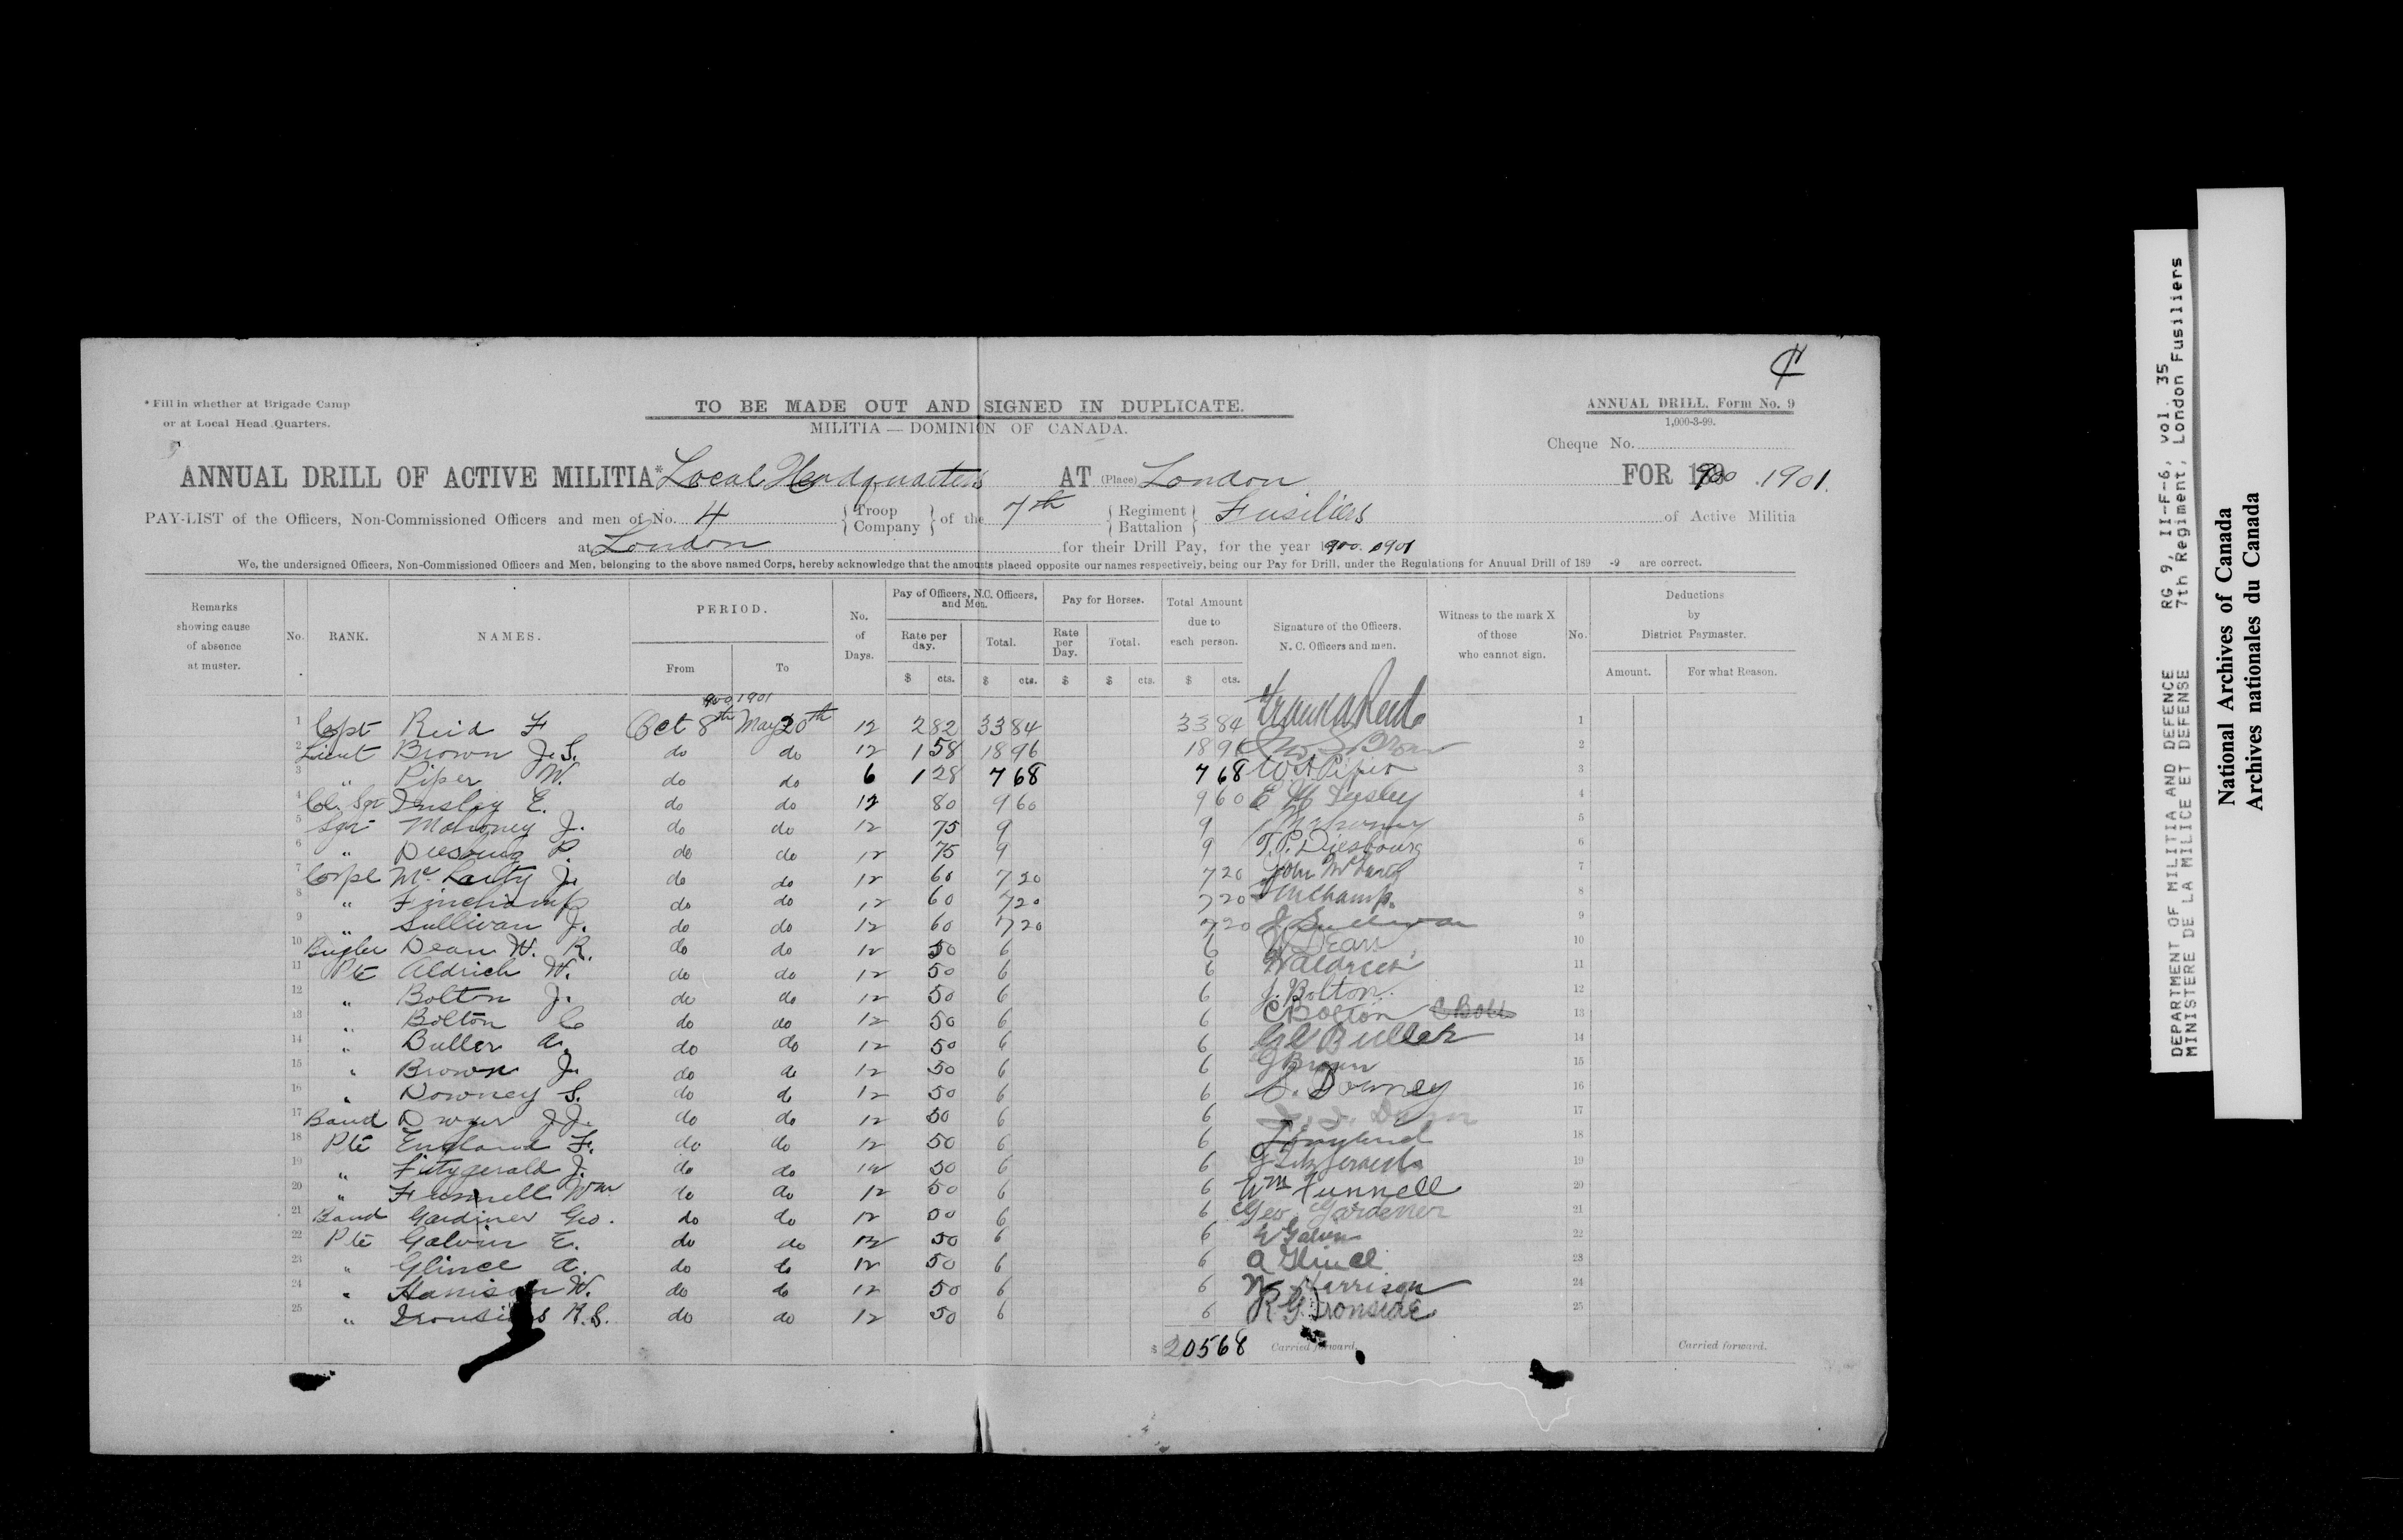 * Fill in whether at Brigade Camp
or at Local Head Quarters.
TO BE MADE OUT AND SIGNED IN DUPLICATE.
MILITIA — DOMINION OF CANADA.
ANNUAL DRILL, Form No. 9
1,000-3-99.
Cheque No.
ANNUAL DRILL OF ACTIVE MILITIA* Local Headquarters AT (Place) London FOR 1900. 1901.
PAY-LIST of the Officers, Non-Commissioned Officers and men of No. 4 { Troop Company } of the 7th { Regiment Battalion } Fusiliers of Active Militia
at London for their Drill Pay, for the year 1900. 1901
We, the undersigned Officers, Non-Commissioned Officers and Men, belonging to the above named Corps, hereby acknowledge that the amounts placed opposite our names respectively, being our Pay for Drill, under the Regulations for Annual Drill of 189 -9 are correct.
Remarks showing cause of absence at muster. No. RANK. NAMES. PERIOD. From To No. of Days. Pay of Officers, N.C. Officers, and Men. Rate per day. $ cts. Total. $ cts. Pay for Horses. Rate per Day. $ Total. $ cts. Total Amount due to each person. $ cts. Signature of the Officers. N. C. Officers and men. Witness to the mark X of those who cannot sign. No. Deductions by District Paymaster. Amount. For what Reason.
900 1901
1 Capt Reid F Oct 8th May 20th 12 2 82 33 84 33 84 1
2 Lieut Brown J. S. do do 12 1 58 18 96 18 96 Jno. S Brown 2
3 " Piper W. do do 6 1 28 7 68 7 68 W A Piper 3
4 Cl. Sgt Insley E. do do 12 80 9 60 9 60 E Insley 4
5 Sgt Mahoney J. do do 12 75 9 9 Mahoney 5
6 " Diesburg P. do do 12 75 9 9 T. P. Diesbourg 6
7 Corpl Mc Larty J. do do 12 60 7 20 7 20 John 7
8 " Finchamp do do 12 60 7 20 7 20 Finchamp. 8
9 " Sullivan J. do do 12 60 7 20 7 20 J Sullivan 9
10 Bugler Dean W. R. do do 12 50 6 6 W Dean 10
11 Pte Aldrich W. do do 12 50 6 6 W Aldrich 11
12 " Bolton J. do do 12 50 6 6 J. Bolton. 12
13 " Bolton C do do 12 50 6 6 C Bolton C Bolt 13
14 " Buller A. do do 12 50 6 6 Buller 14
15 " Brown J. do do 12 50 6 6 J Brown 15
16 " Downey S. do do 12 50 6 6 S. Downey 16
17 Band Dwyer J. J. do do 12 50 6 6 J. J. 17
18 Pte England F. do do 12 50 6 6 F England 18
19 " Fitzgerald J. do do 12 50 6 6 J Fitzgerald 19
20 " Funnell Wm do do 12 50 6 6 Wm Funnell 20
21 Band Gardiner Geo. do do 12 50 6 6 Geo. Gardener 21
22 Pte Galvin E. do do 12 50 6 6 E Galvin 22
23 " Glince A. do do 12 50 6 6 A 23
24 " Harrison W. do do 12 50 6 6 W Harrison 24
25 " Ironsides R. G. do do 12 50 6 6 R G Ironside 25
$ 205 68 Carried forward. Carried forward.
DEPARTMENT OF MILITIA AND DEFENCE RG 9, II-F-6, vol. 35
MINISTERE DE LA MILICE ET DEFENSE 7th Regiment, London Fusiliers
National Archives of Canada
Archives nationales du Canada